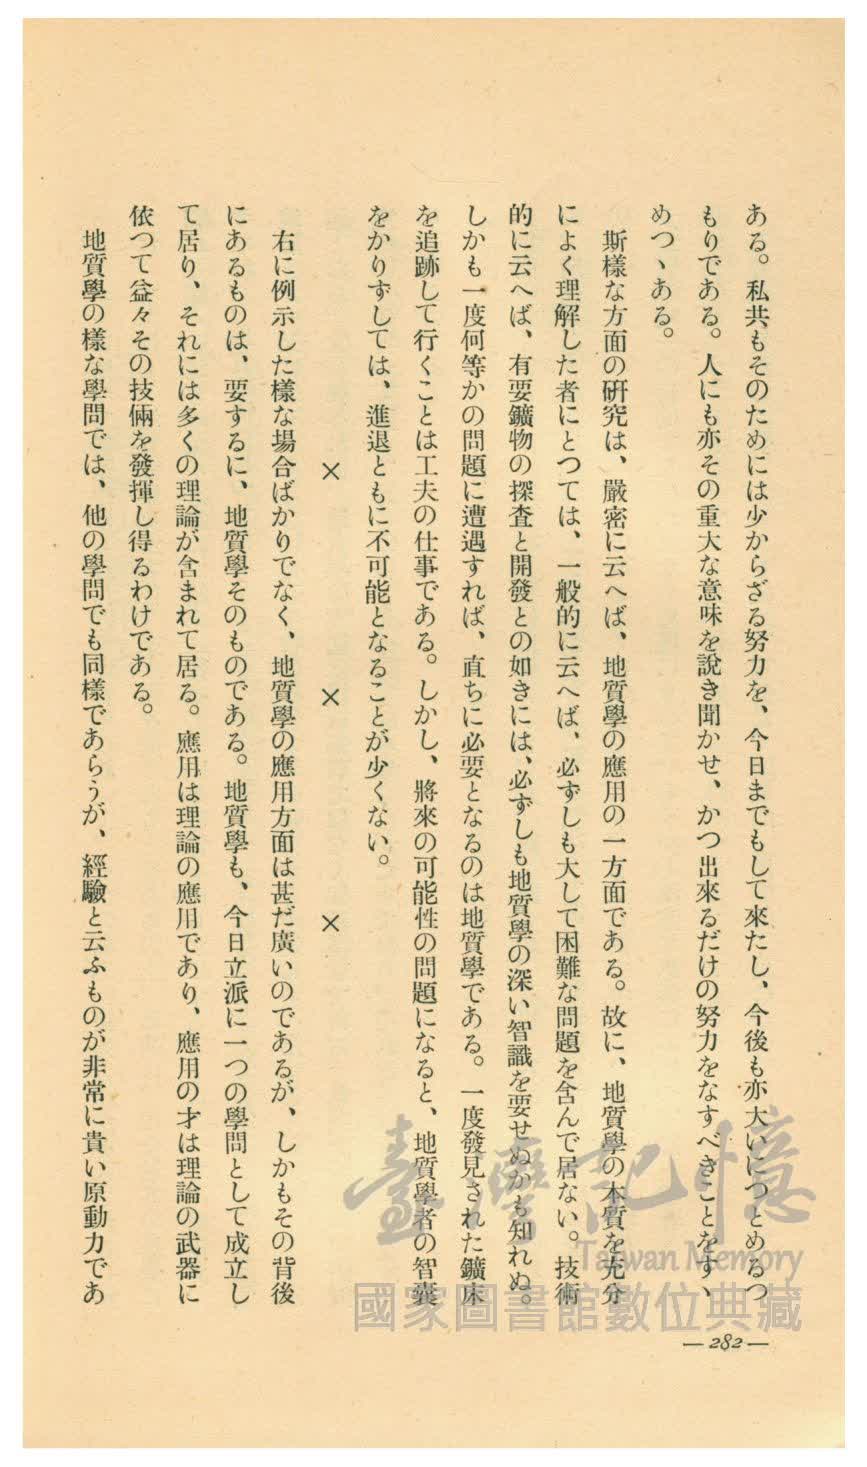 ある。私共もそのためには少からざる努力を、今日までもして來たし、今後も亦大いにつとめるつ
もりである。人にも亦その重大な意味を說き聞かせ、かつ出來るだけの努力をなすべきことをすゝ
めつゝある。
斯樣な方面の研究は、嚴密に云へば、地質學の應用の一方面である。故に、地質學の本質を充分
によく理解した者にとつては、一般的に云へば、必ずしも大して困難な問題を含んで居ない。技術
的に云へば、有要鑛物の探査と開發との如きには、必ずしも地質學の深い智識を要せぬかも知れぬ。
しかも一度何等かの問題に遭遇すれば、直ちに必要となるのは地質學である。一度發見された鑛床
を追跡して行くことは工夫の仕事である。しかし、將來の可能性の問題になると、地質學者の智囊
をかりずしては、進退ともに不可能となることが少くない。
× × ×
右に例示した樣な場合ばかりでなく、地質學の應用方面は甚だ廣いのであるが、しかもその背後
にあるものは、要するに、地質學そのものである。地質學も、今日立派に一つの學問として成立し
て居り、それには多くの理論が含まれて居る。應用は理論の應用であり、應用の才は理論の武器に
依つて益々その技倆を發揮し得るわけである。
地質學の樣な學問では、他の學問でも同樣であらうが、經驗と云ふものが非常に貴い原動力であ
— 282 —
臺灣記憶
Taiwan Memory
國家圖書館數位典藏